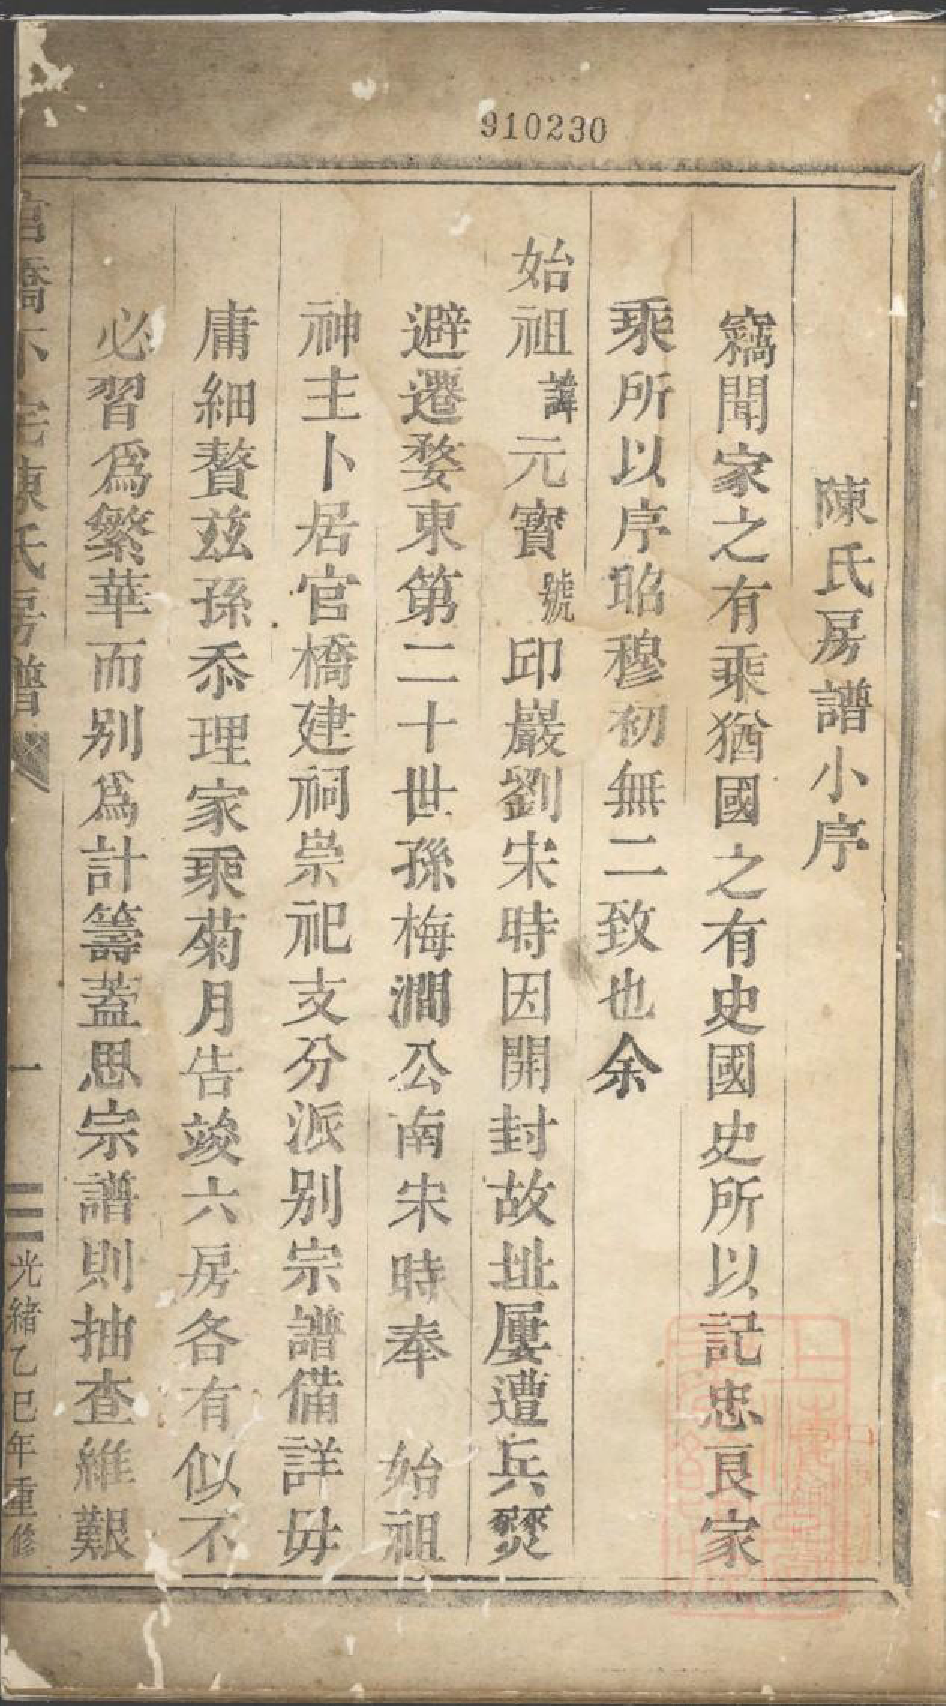 910230
陳氏房譜小序
竊聞家之有乘猶國之有史國史所以記忠良家
乘所以序昭穆初無二致也余
始祖諱元寶號卬巖劉宋時因開封故址屢遭兵燹
避遷婺東第二十世孫梅澗公南宋時奉　始祖
神主卜居官橋建祠崇祀支分派别宗譜備詳毋
庸細贅兹孫忝理家乘菊月告竣六房各有似不
必習爲繁華而别爲計籌蓋思宗譜則抽查維艱
官橋下宅陳氏房譜　一　光緒乙巳年重修